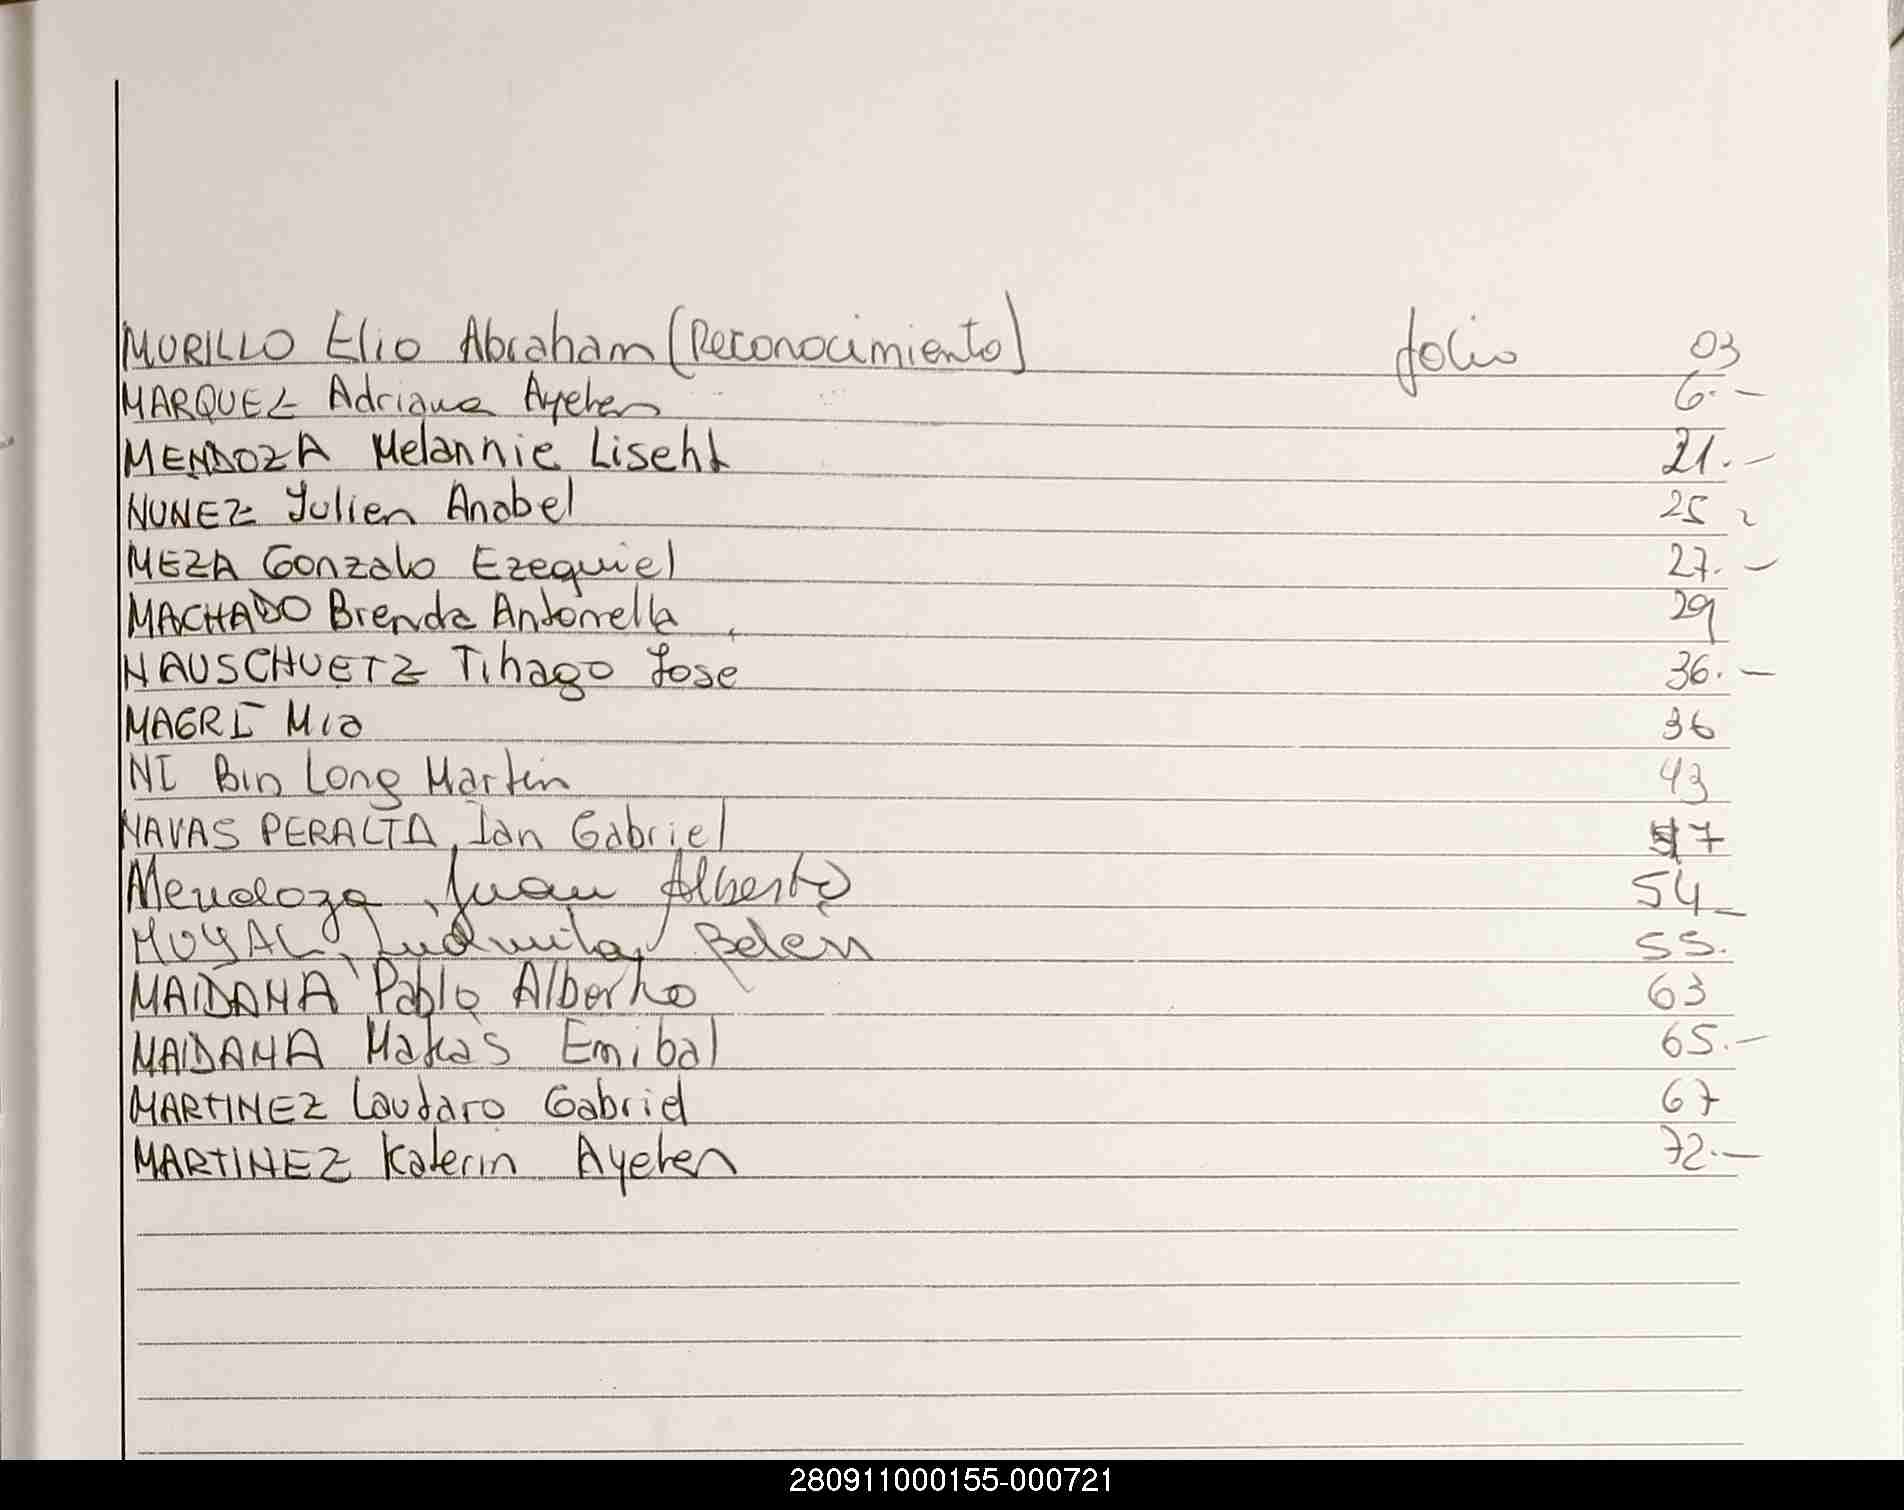 MURILLO Elio Abraham (Reconocimiento) folio 03
MARQUEZ Adriana Ayelen 6.-
MENDOZA Melannie Liseht 21.-
NUNEZ Julien Anabel 25
MEZA Gonzalo Ezequiel 27.-
MACHADO Brenda Antonella 29
NAUSCHUETZ Tihago Jose 36.-
MAGRI Mia 36
NI Bin Long Martin 43
NAVAS PERALTA, Ian Gabriel 7
Mendoza, Juan Alberto 54_
MOYAL, Ludmila Belén 55.
MAIDANA Pablo Alberto 63
MAIDANA Matias Emibal 65.-
MARTINEZ Lautaro Gabriel 67
MARTINEZ Katerin Ayelen 72.-
280911000155-000721